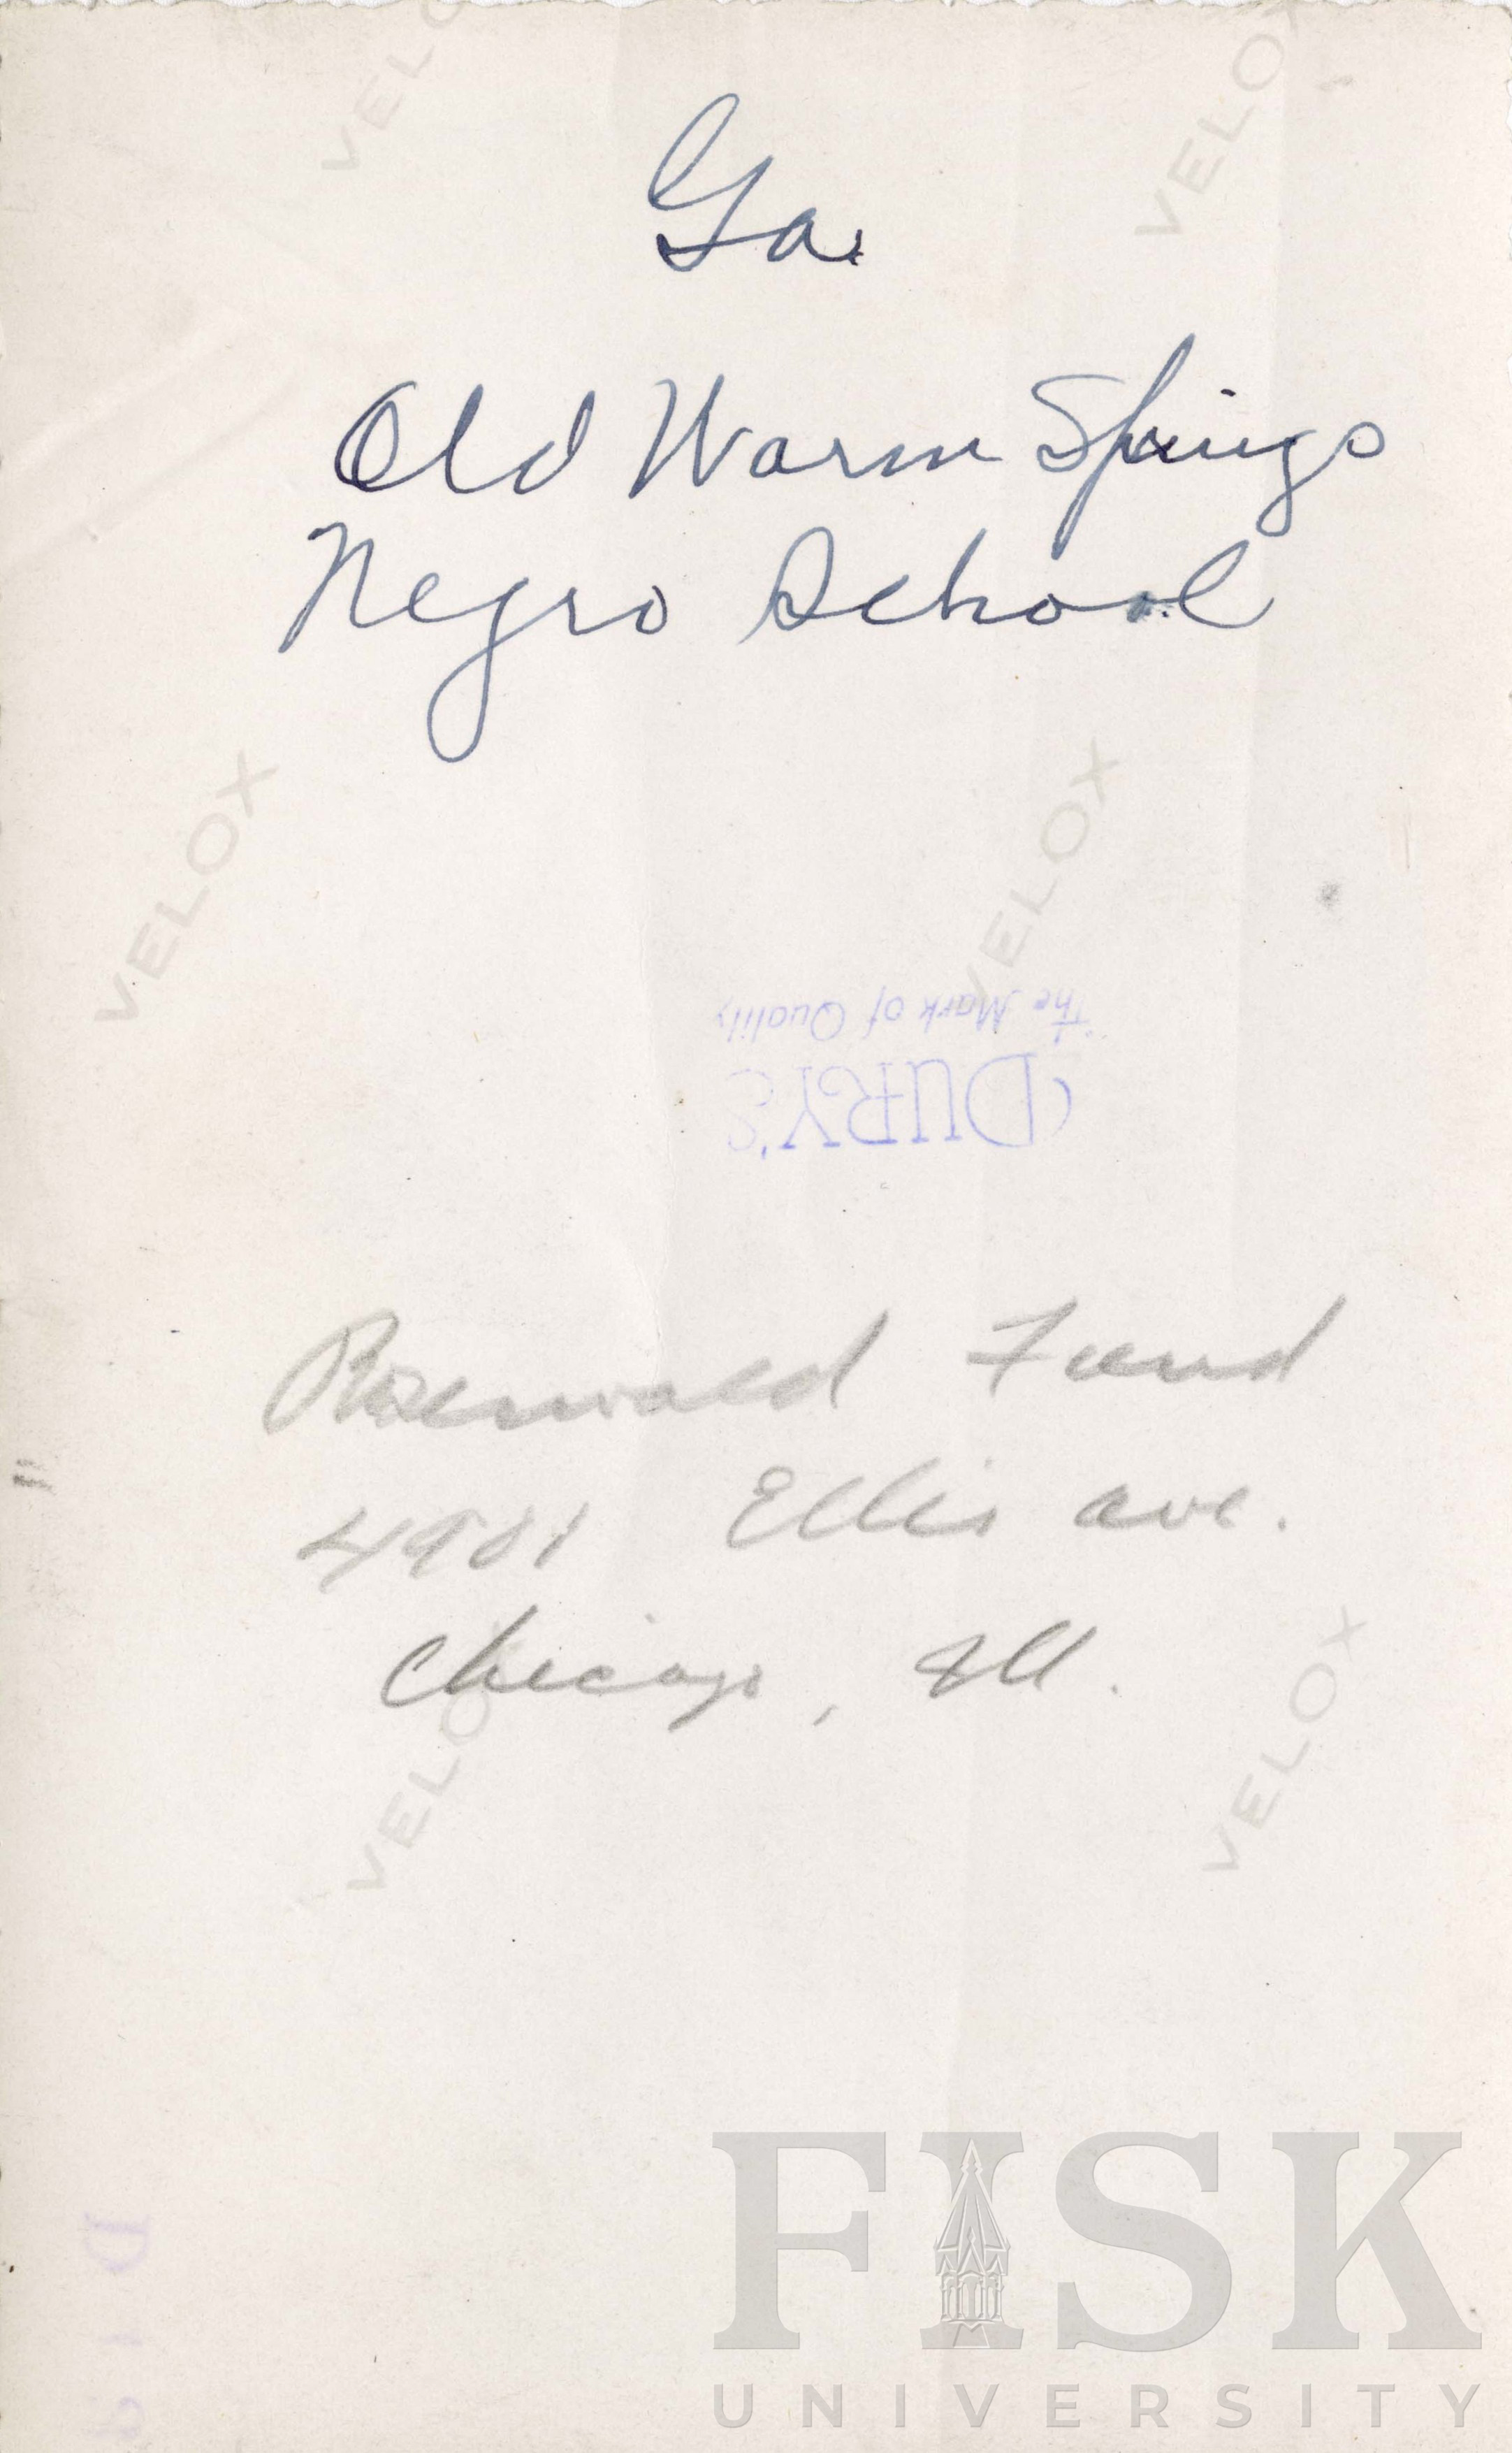 VELOX
VELOX
Ga.
Old Warm Springs
Negro School
VELOX
VELOX
The Mark of Quality
DURY'S
Rosenwald Fund
4901 Ellis ave.
Chicago, Ill.
VELOX
VELOX
FISK
UNIVERSITY